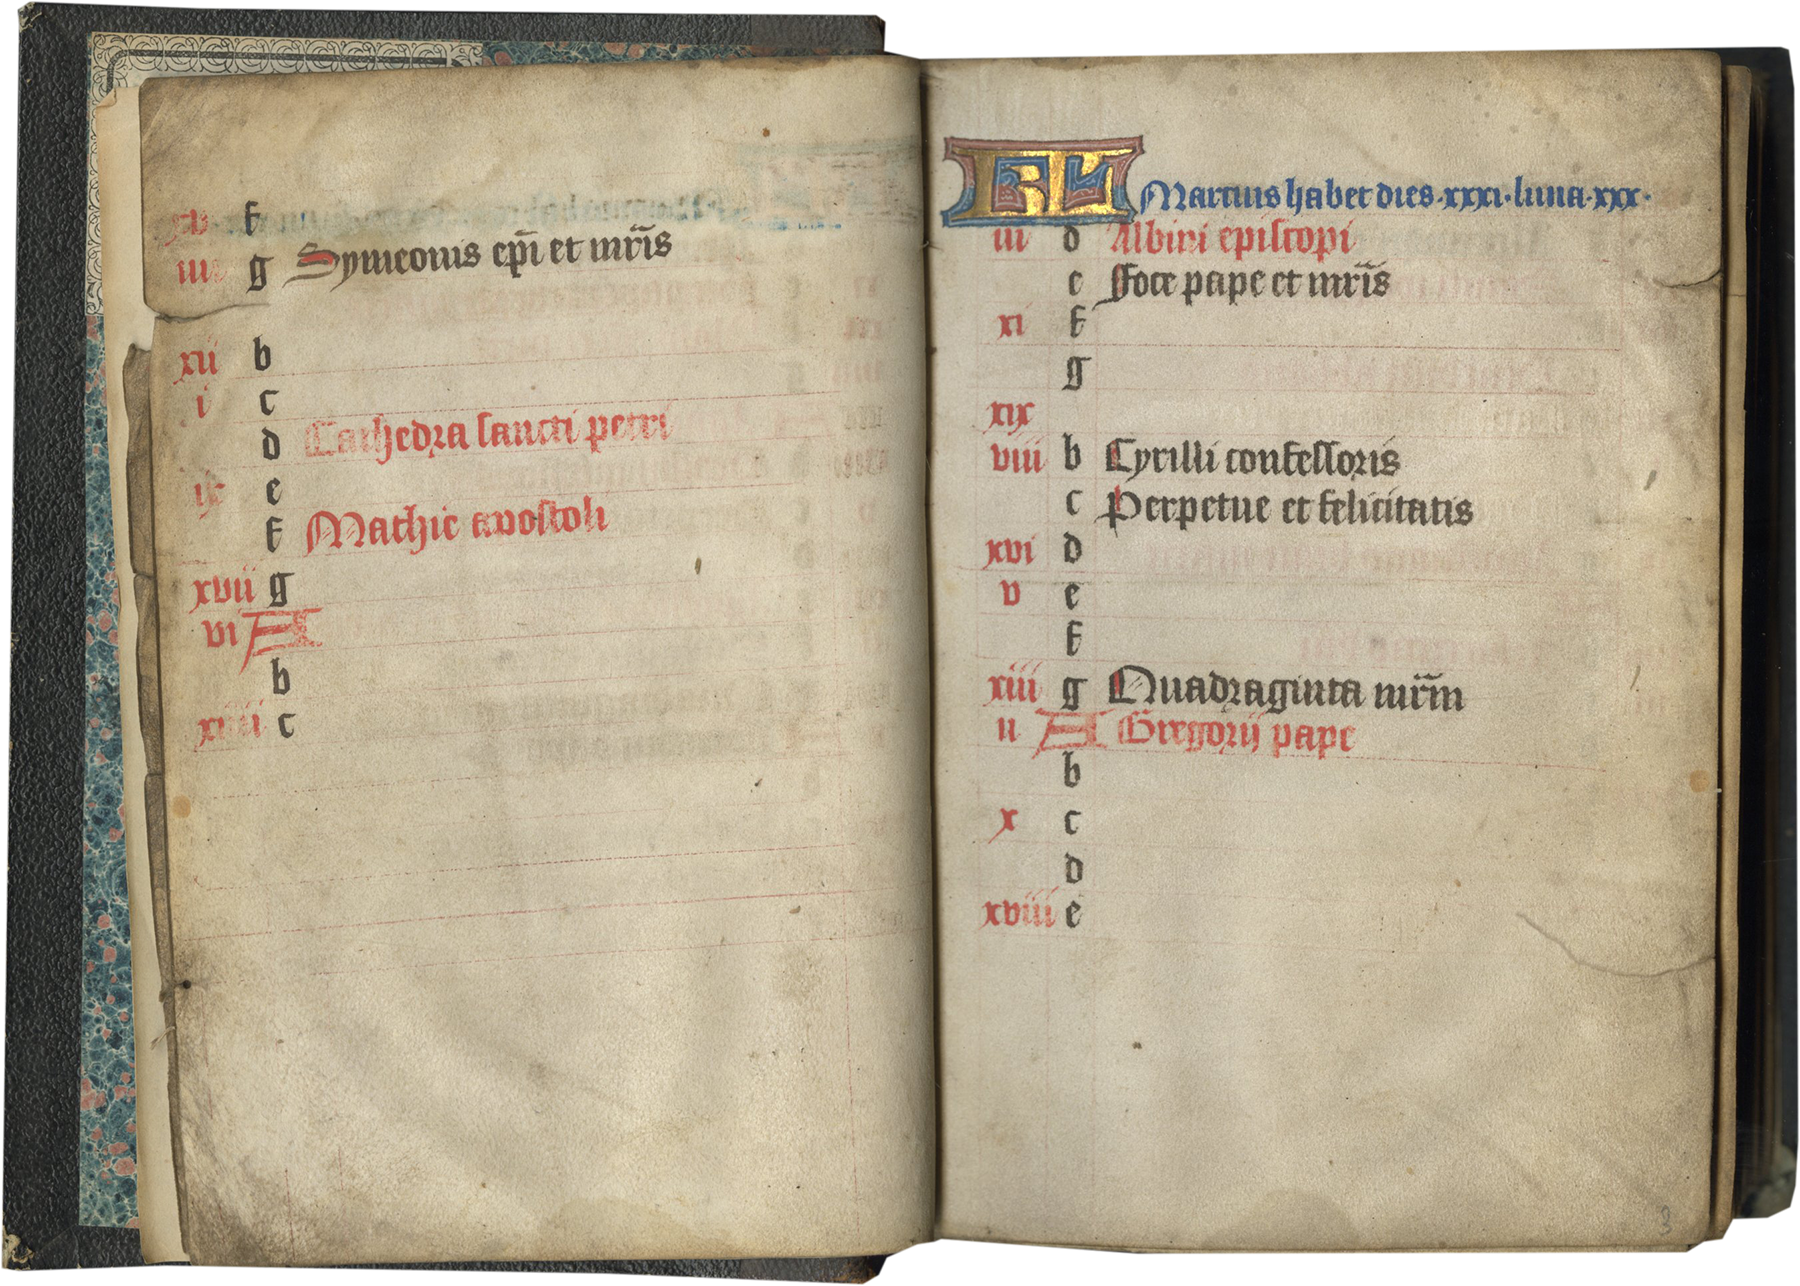 xv f
iiii g Symeonis ep̄i et mr̄is
xii b
i c
d Cathedra sancti petri
ix e
f Mathie apostoli
xvii g
vi A
b
xiiii c
KL Marcius habet dies · xxxi · luna · xxx ·
iii d Albini episcopi
e Foce pape et mr̄is
xi f
g
xix
viii b Cyrilli confessoris
c Perpetue et felicitatis
xvi d
v e
f
xiii g Quadraginta mr̄m
ii A Gregorij pape
b
x c
d
xviii e
3